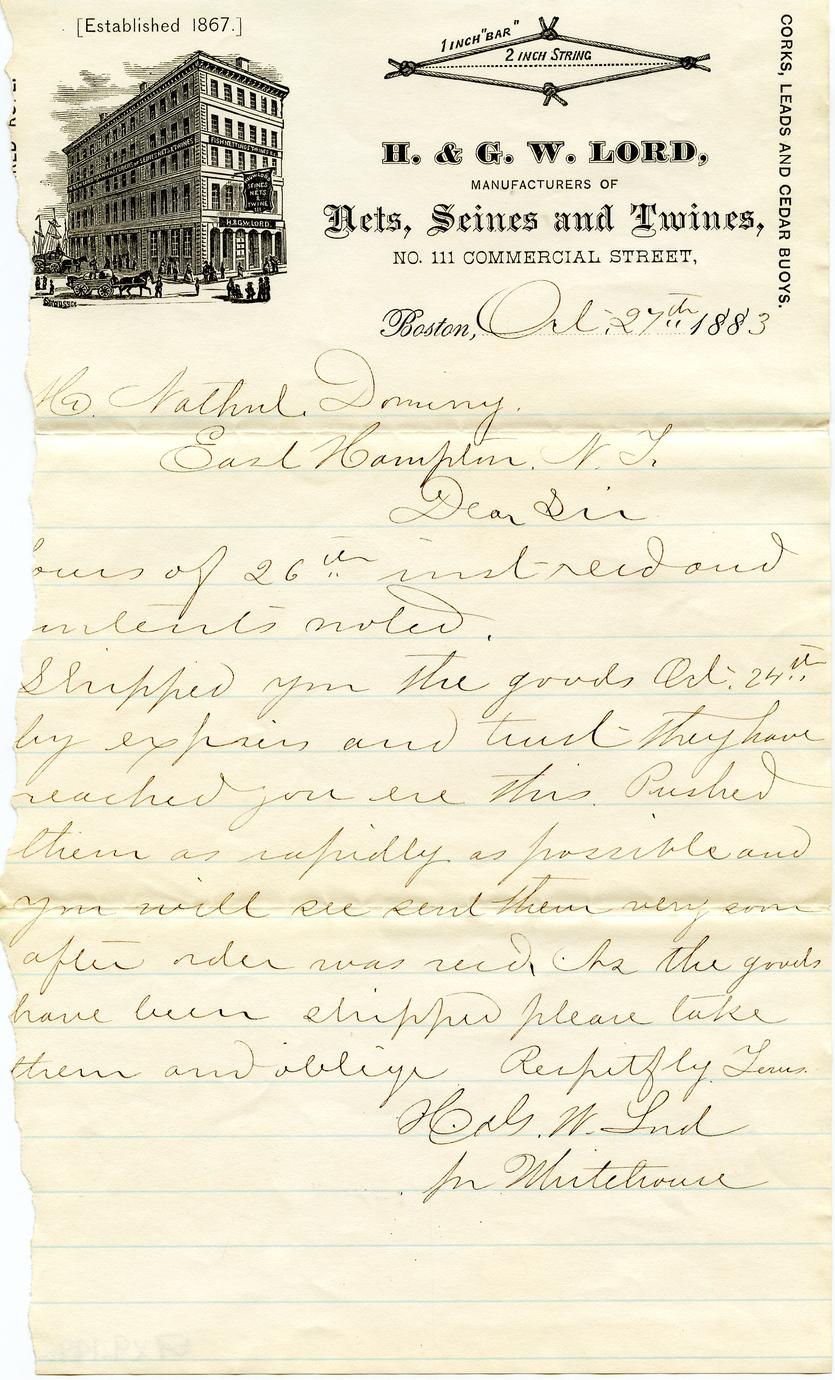 [Established 1867.]
1 INCH "BAR"
2 INCH STRING
CORKS, LEADS AND CEDAR BUOYS.
FISH NETTING & TWINE
SEINES
NETS
&
TWINE
111
H.&G.W. LORD.
H. & G. W. LORD,
MANUFACTURERS OF
Nets, Seines and Twines,
NO. 111 COMMERCIAL STREET,
Boston, Oct. 27th 1883
Mr. Nathnl. Dominy.
East Hampton. N. Y.
Dear Sir
ours of 26th inst recd and
ntents noted.
Shipped you the goods Oct. 24th
by express and trust they have
reached you ere this. Pushed
them as rapidly as possible and
you will see sent them very soon
after order was recd. As the goods
have been shipped please take
them and oblige Respitfly Yours.
H & G. W. Lord
pr Whitehouse